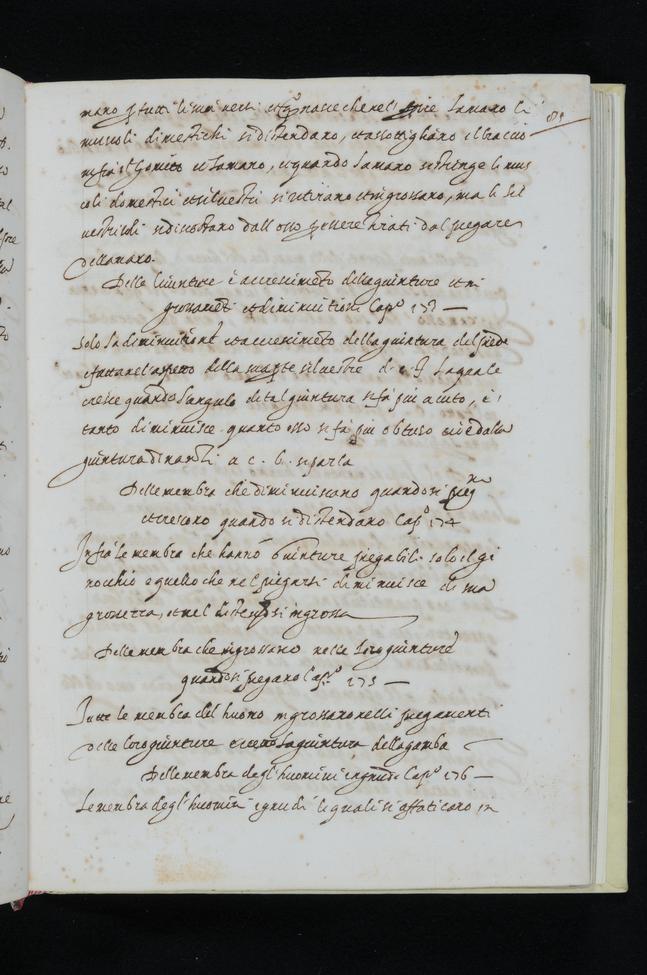 mano p tutti li suoi versi et q.o nasce che nel' aprire la mano li
musoli dimestichi si distendano, et assottigliano il braccio
infra il Gomito et la mano, et quando la mano si stringe li mus
coli domestici et siluestri si ritirano et ingrossano, ma li sil
uestri soli si discostano dall'osso p essere tirati dal piegare
della mano.
Delle Giunture è accrescimẽto della giunture et in
grossamẽti et diminuitioni Cap.o 173 —
Solo la diminuitione et accrescimẽto della giuntura del piede
è fatta nel aspetto della sua parte siluestre d. e. f. la quale
cresce quando l'angulo di tal giuntura si fa più acuto, è
tanto diminuisce quanto esso si fa più obtuso cioè dalla
giuntura dinanti a c. b. si parla
Delle membra che diminuiscano quando si pieg.no
et crescono quando si distendano Cap.o 174
Infra le membra che hanno Giunture piegabili solo il gi
nocchio e quello che nel piegarsi diminuisce di sua
grossezza, et nel distendersi ingrossa
Delle membra che ingrossano nelle loro giunture
quando si piegano Cap.o 175 —
Tutte le membra del huomo ingrossano nelli piegamenti
delle loro giunture eccetto la giuntura della gamba
Delle membra degl'huomini ingnudi Cap.o 176 —
Le membra degl'huomini ignudi le quali si affaticano in